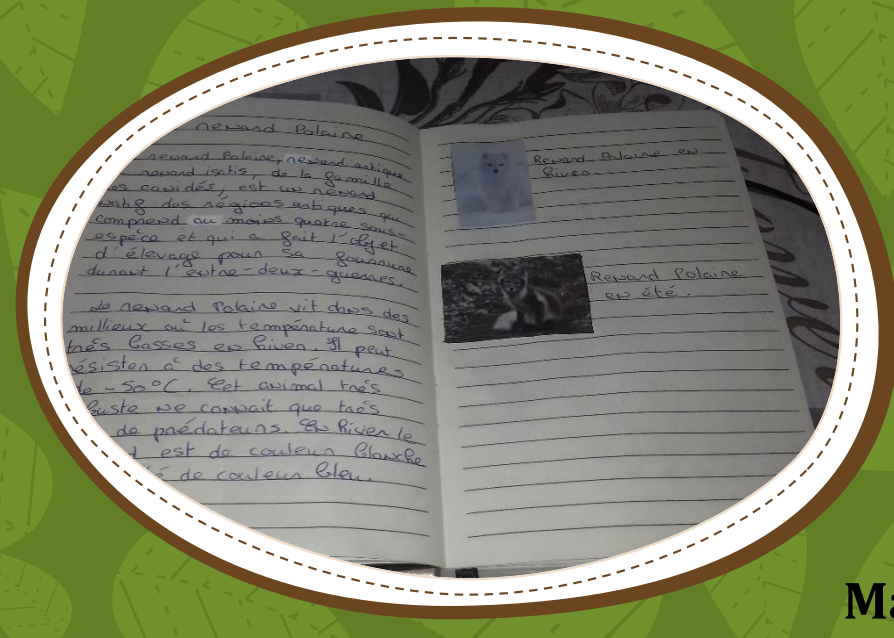 renard Polaire
renard Polaire, renard artique
renard isatis, de la famille
des canidés, est un renard
natif des régions artiques qui
comprend au moins quatre sous-
espèce et qui a fait l'objet
d'élevage pour sa fourrure
durant l'entre-deux-guerres.
Le renard Polaire vit dans des
millieux où les température sont
très basses en hiver. Il peut
résister à des températures
de -50°C. Cet animal très
buste ne connait que très
de prédateurs. En hiver le
est de couleur blanche
de couleur bleu.
Renard Polaire en
hiver.
Renard Polaire
en été.
Ma